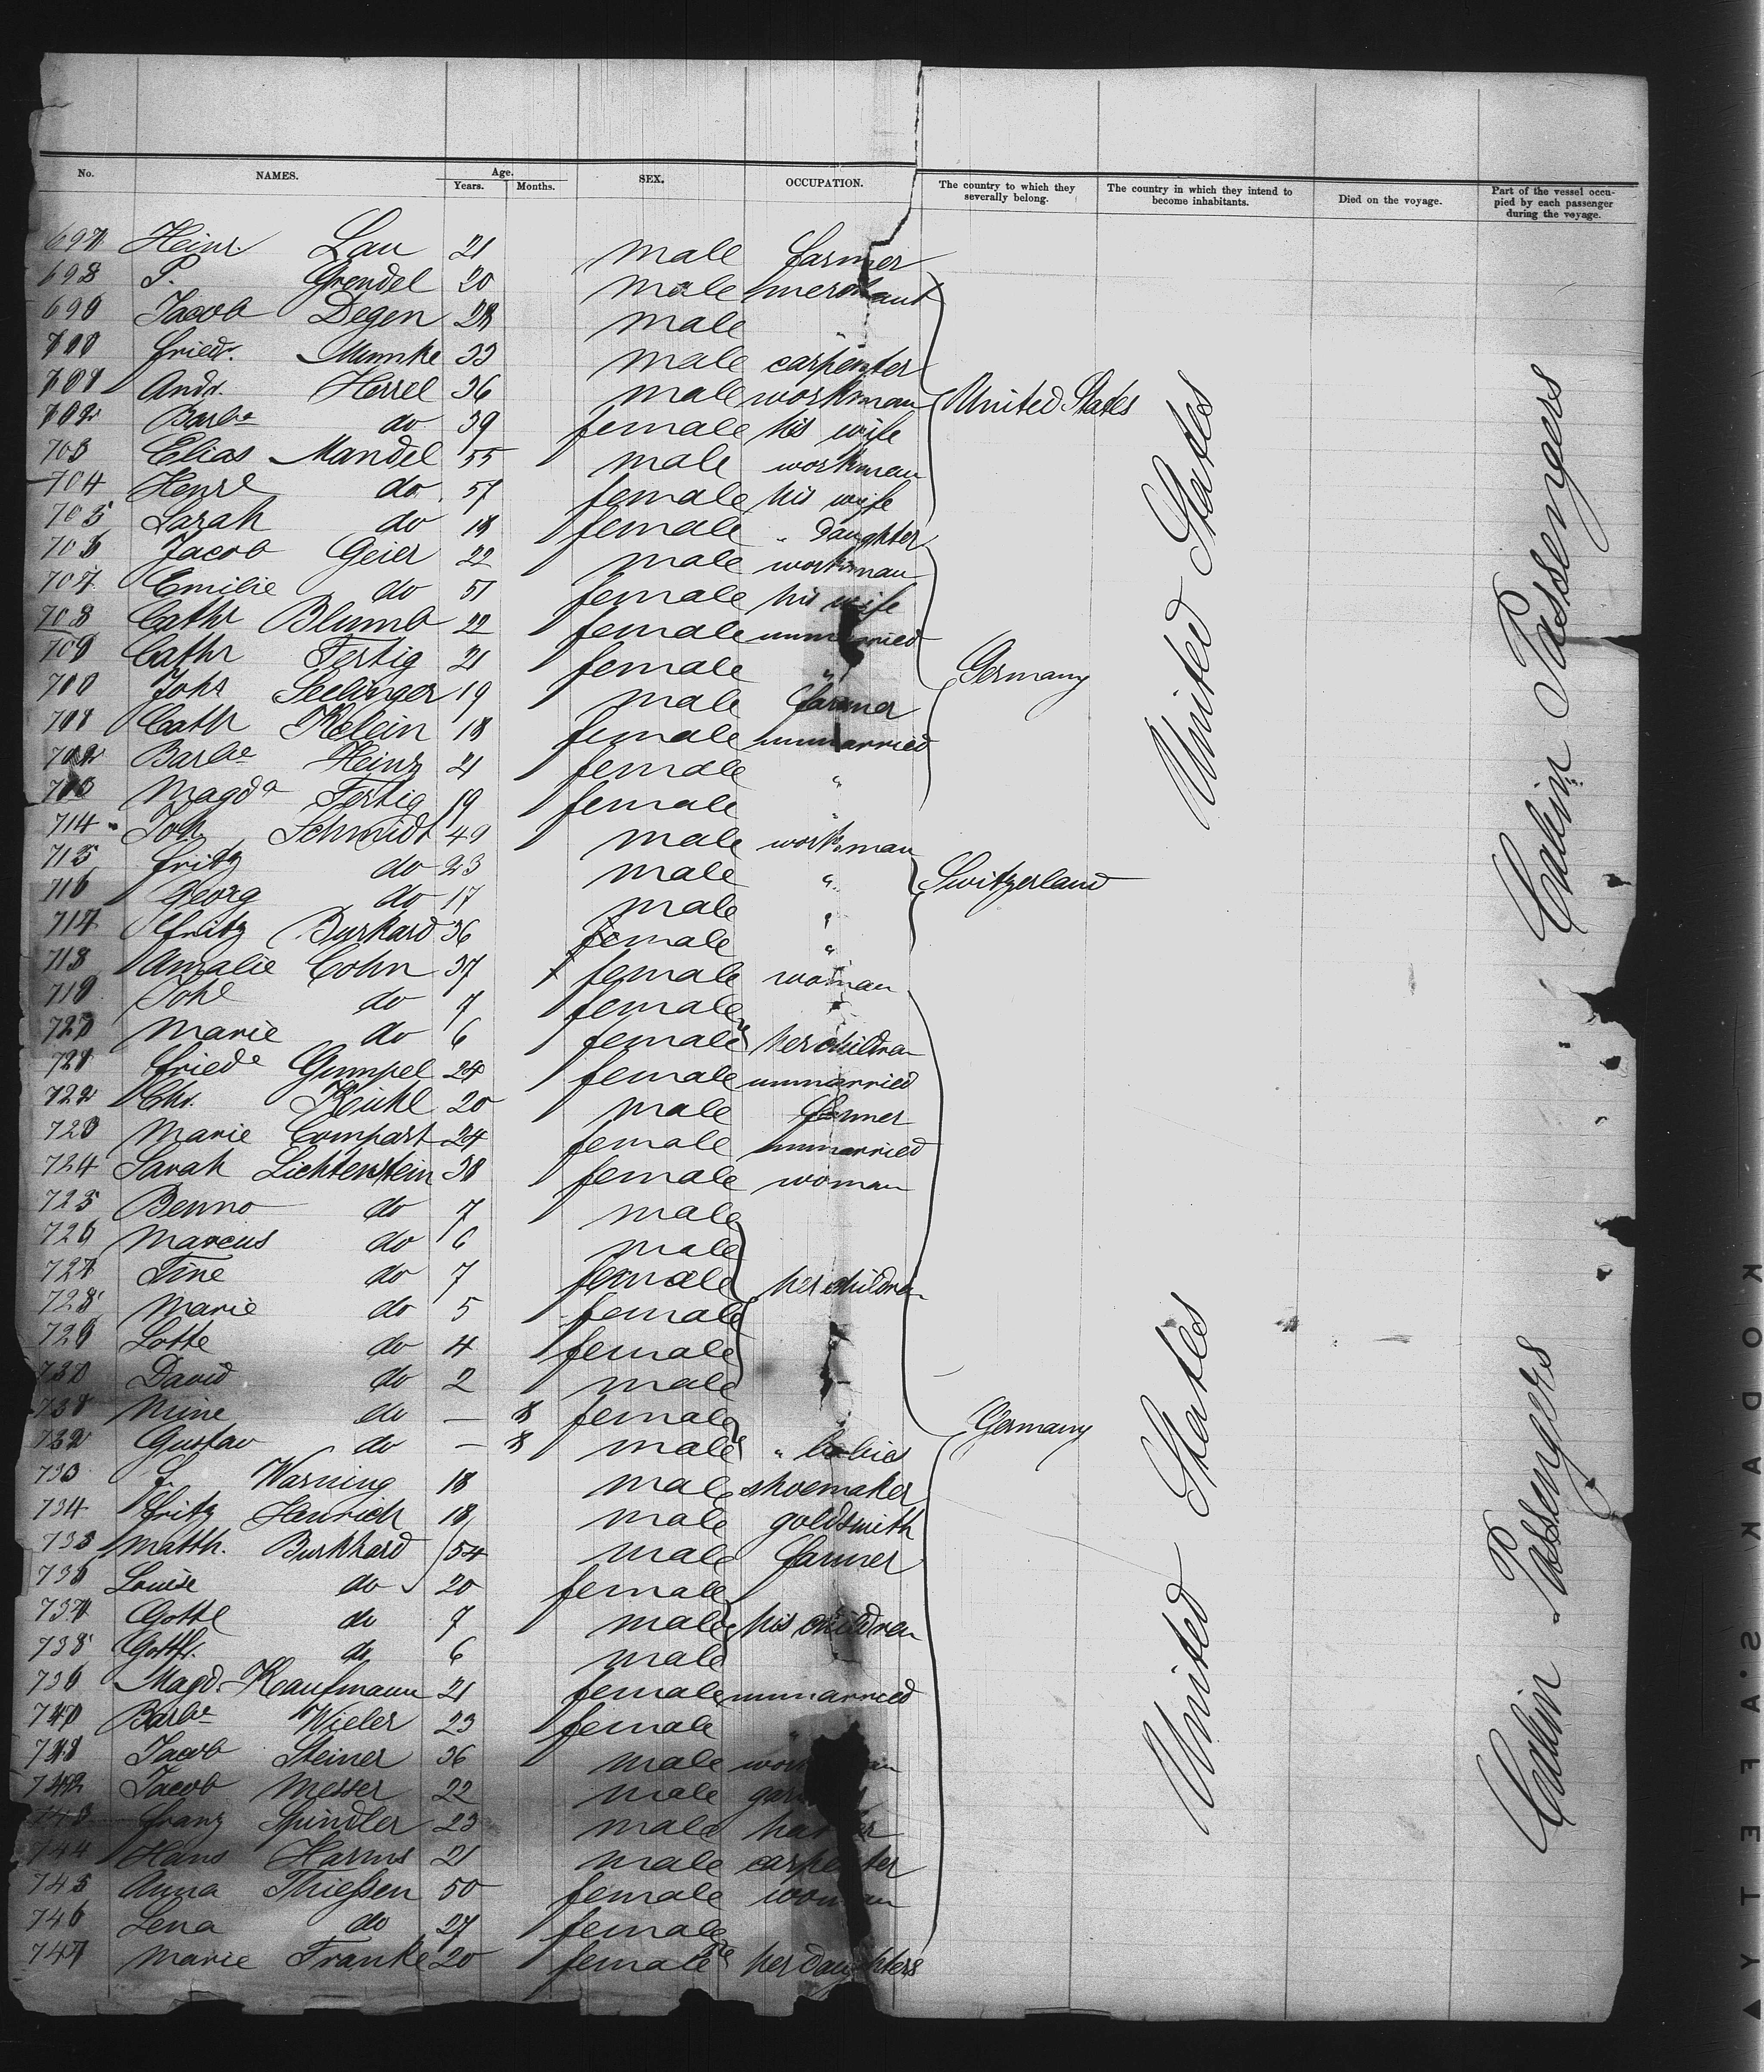 No. NAMES. Age. Years. Months. SEX. OCCUPATION. The country to which they severally belong. The country in which they intend to become inhabitants. Died on the voyage. Part of the vessel occupied by each passenger during the voyage.
697 Heinr. Lau 21 male farmer
698 P. Grendel 20 male merchant
699 Jacob Degen 28 male "
700 Friedr. Mumke 33 male carpenter
701 Andr. Herrel 36 male workman United States
702 Barbe do 39 female his wife
703 Elias Mandel 55 male workman
704 Henrl do 57 female his wife
705 Sarah do 18 female " daughter
706 Jacob Geier 22 male workman
707 Emilie do 51 female his wife
708 Cathr Blumb 22 female unmarried
709 Cathr Fertig 21 female " Germany
710 Johs Seelinger 19 male farmer
711 Cath Klein 18 female unmarried
712 Barbe Heinz 21 female "
713 Magda Fertig 19 female "
714 Joh. Schmidt 49 male workman
715 Fritz do 23 male " Switzerland
716 Georg do 17 male "
717 Fritz Burkard 36 male "
718 Amalie Cohn 37 female woman
719 do 7 female
720 Marie do 6 female her children
721 Friede Gumpel 24 female unmarried
722 Chr. Keuhl 20 male farmer
723 Marie Compart 24 female unmarried
724 Sarah Lichtenstein 38 female woman
725 Benno do 7 male
726 Marcus do 6 male
727 Tine do 7 female her children
728 Marie do 5 female
729 Lotte do 4 female
730 David do 2 male
731 Mine do — 8 female Germany
732 Gustav do — 8 male " babies
733 Warning 18 male shoemaker
734 Fritz Henrich 18 male goldsmith
735 Matth. Burkhard 54 male farmer
736 Louise do 20 female
737 Gottl do 7 male his children
738 Gottfr. do 6 male
739 Magd. Kaufmann 21 female unmarried
740 Barbe Wieler 23 female "
741 Jacob Steiner 36 male workman
742 Jacob Messer 22 male
743 Franz Spindler 23 male
744 Hans Harms 21 male carpenter
745 Anna Thießen 50 female woman
746 Lena do 27 female
747 Marie Franke 20 female her daughters
United States
United States
Cabin Passengers
Cabin Passengers
KODAK S'AFETY